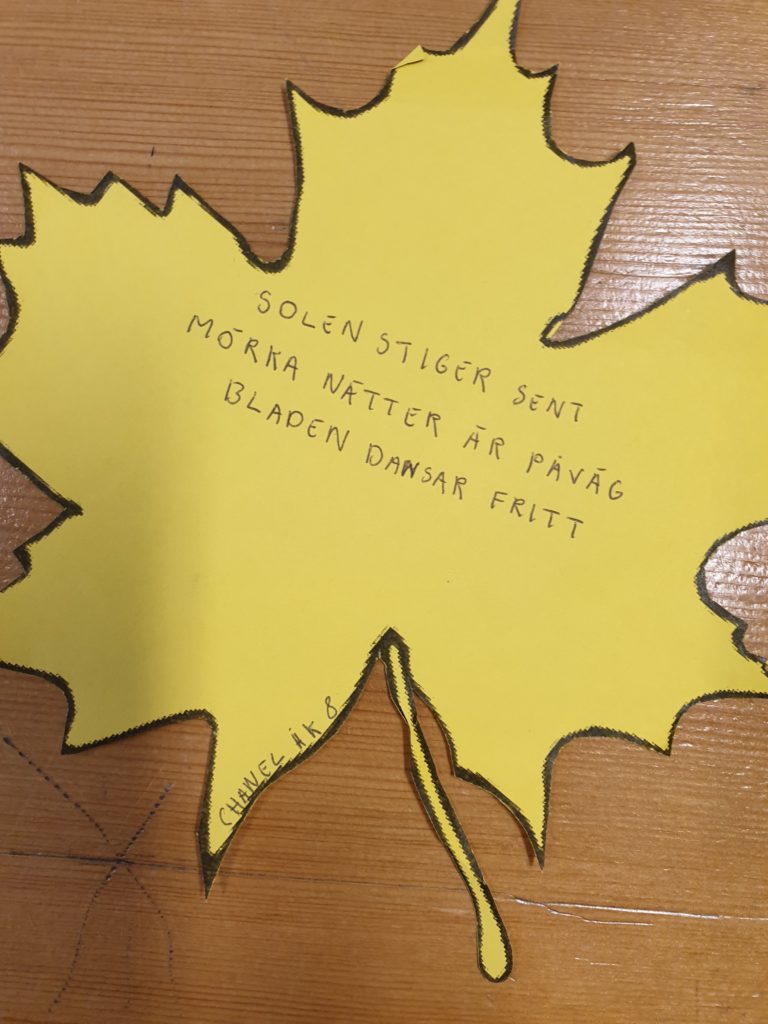 SOLEN STIGER SENT
MÖRKA NÄTTER ÄR PÅVÄG
BLADEN DANSAR FRITT
CHANEL ÅK 8